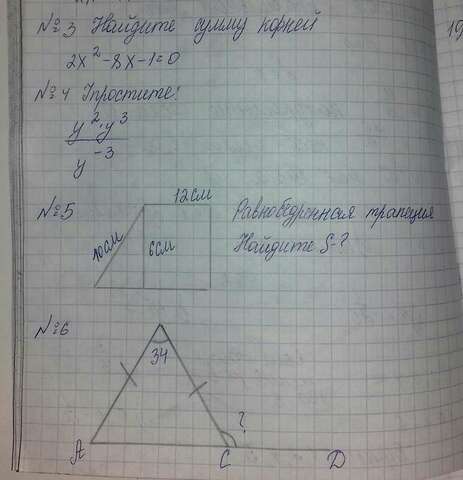 №3 Найдите сумму корней
2x² - 8x - 1 = 0
№4 Упростите:
y² · y³
y⁻³
№5
12см
10см
6см
Равнобедренная трапеция
Найдите S-?
№6
34
?
A
C
D